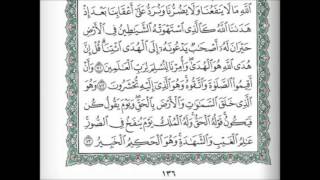 اللَّهِ مَا لَا يَنفَعُنَا وَلَا يَضُرُّنَا وَنُرَدُّ عَلَىٰ أَعْقَابِنَا بَعْدَ إِذْ
هَدَىٰنَا اللَّهُ كَالَّذِى اسْتَهْوَتْهُ الشَّيَٰطِينُ فِى الْأَرْضِ
حَيْرَانَ لَهُۥ أَصْحَٰبٌ يَدْعُونَهُۥٓ إِلَى الْهُدَى ائْتِنَا قُلْ إِنَّ
هُدَى اللَّهِ هُوَ الْهُدَىٰ وَأُمِرْنَا لِنُسْلِمَ لِرَبِّ الْعَٰلَمِينَ ٧١
وَأَنْ أَقِيمُوا الصَّلَوٰةَ وَاتَّقُوهُ وَهُوَ الَّذِىٓ إِلَيْهِ تُحْشَرُونَ ٧٢ وَهُوَ
الَّذِى خَلَقَ السَّمَٰوَٰتِ وَالْأَرْضَ بِالْحَقِّ وَيَوْمَ يَقُولُ كُن
فَيَكُونُ قَوْلُهُ الْحَقُّ وَلَهُ الْمُلْكُ يَوْمَ يُنفَخُ فِى الصُّورِ
عَٰلِمُ الْغَيْبِ وَالشَّهَٰدَةِ وَهُوَ الْحَكِيمُ الْخَبِيرُ ٧٣
١٣٦